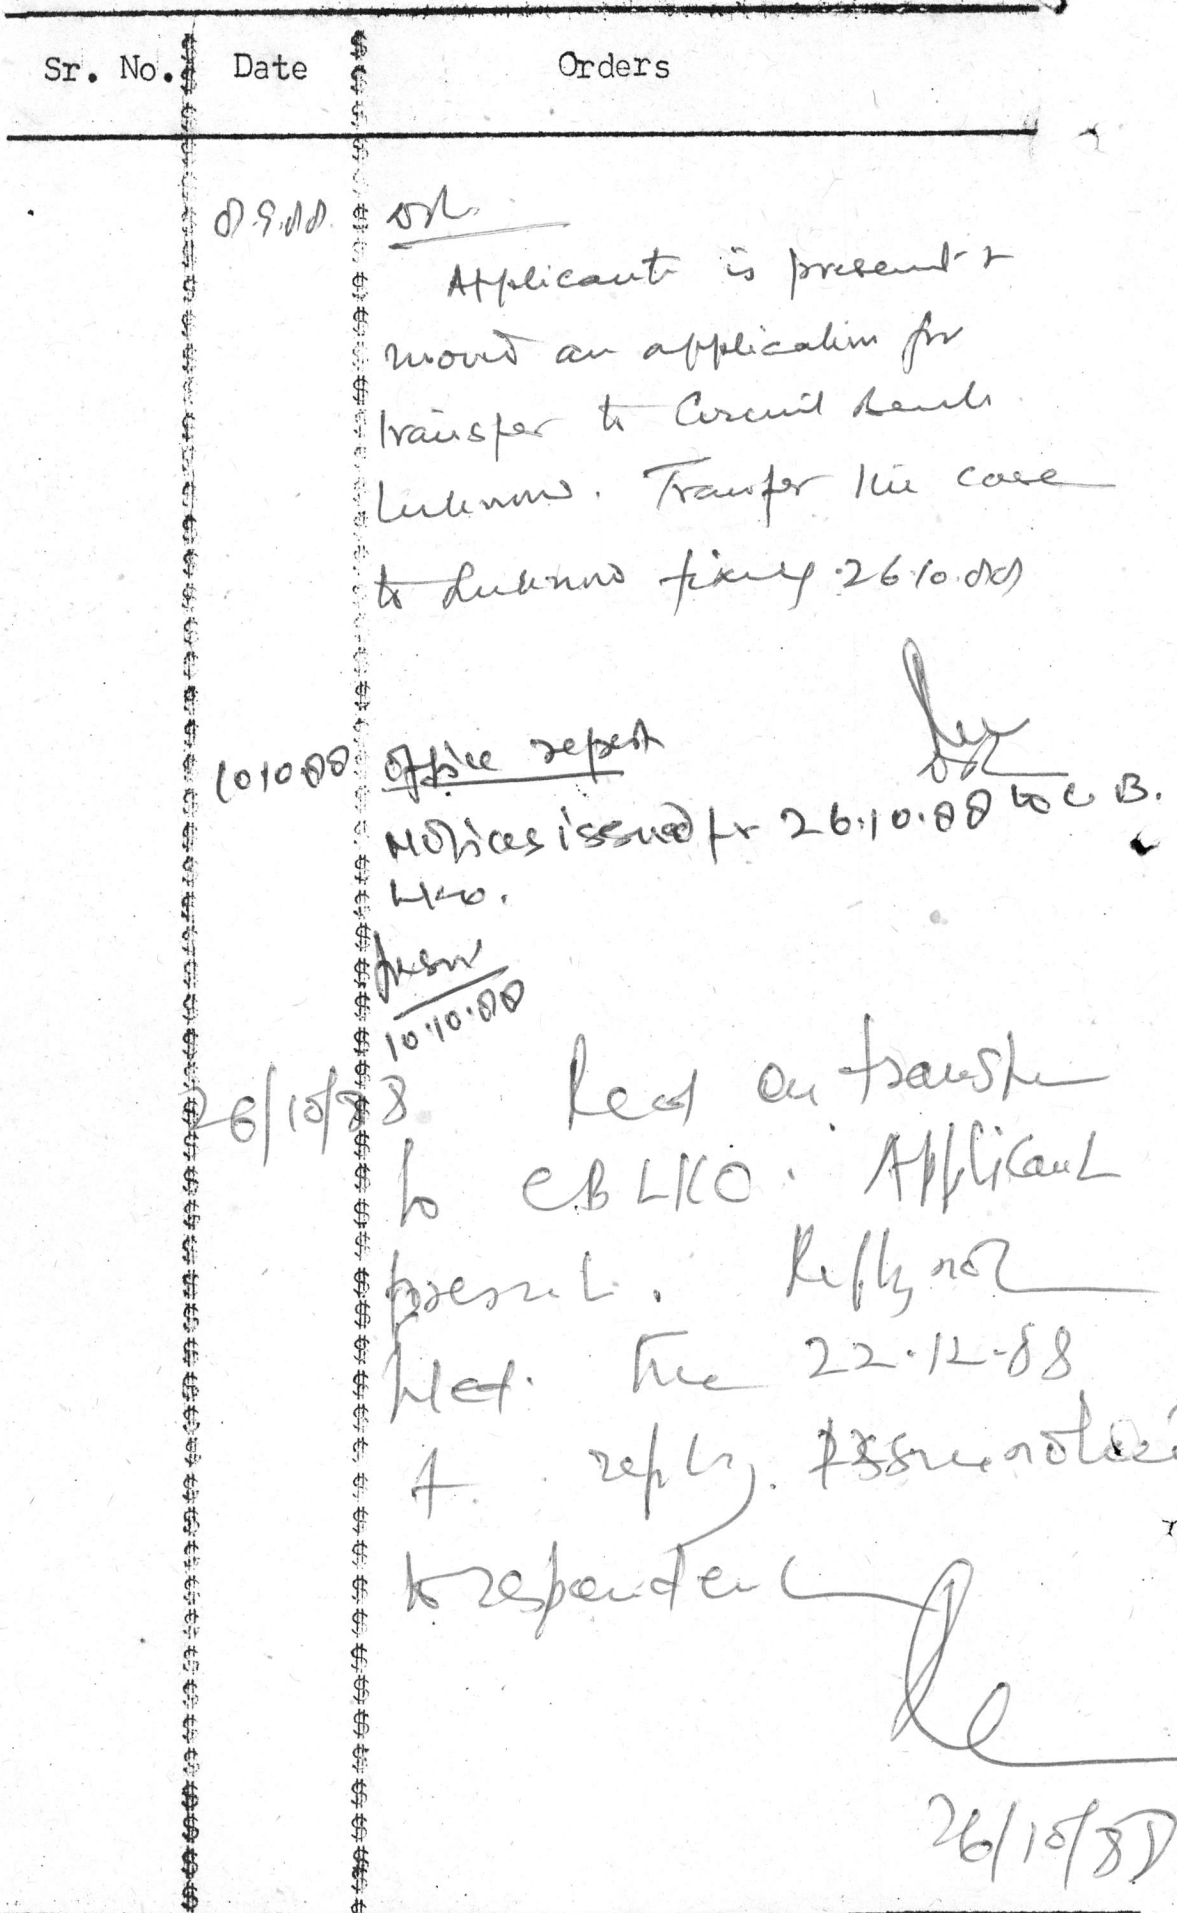 Sr. No. Date Orders
8.9.88 DR
Applicant is present &
moved an application for
transfer to Circuit Bench
Lucknow. Transfer the case
to Lucknow fixing 26.10.88
DR
10.10.88 Office report
Notices issued for 26.10.88 to C.B.
LKO.
10.10.88
26/10/88 Recd on transfer
to CB LKO. Applicant
present. Reply not
filed. 22.12.88
reply. Issue notice
to respondent
26/10/88